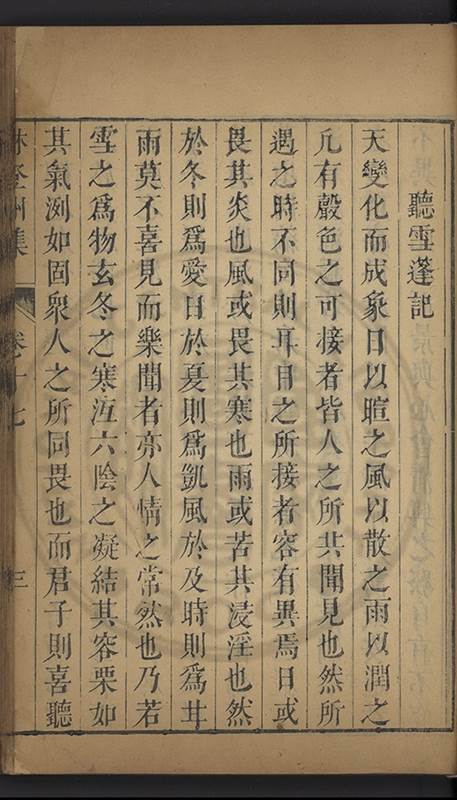 聽雪蓬記
天變化而成象日以暄之風以散之雨以潤之
凡有聲色之可接者皆人之所共聞見也然所
遇之時不同則耳目之所接者容有異焉日或
畏其炎也風或畏其寒也雨或苦其浸淫也然
於冬則爲愛日於夏則爲凱風於及時則爲甘
雨莫不喜見而樂聞者亦人情之常然也乃若
雪之爲物玄冬之寒沍六陰之凝結其容栗如
其氣冽如固衆人之所同畏也而君子則喜聽
林登州集
卷十七
三